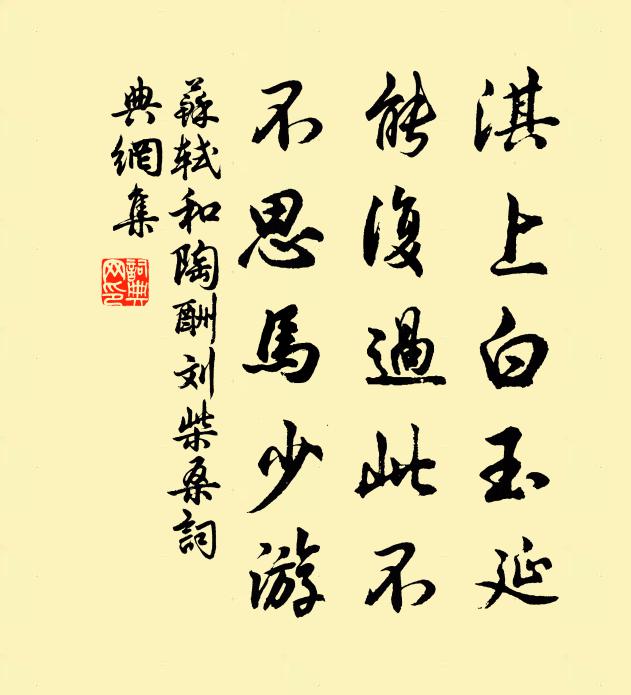 淇上白玉延
能復過此不
不思馬少游
蘇軾和陶酬刘柴桑詞
典網集
詞典網印